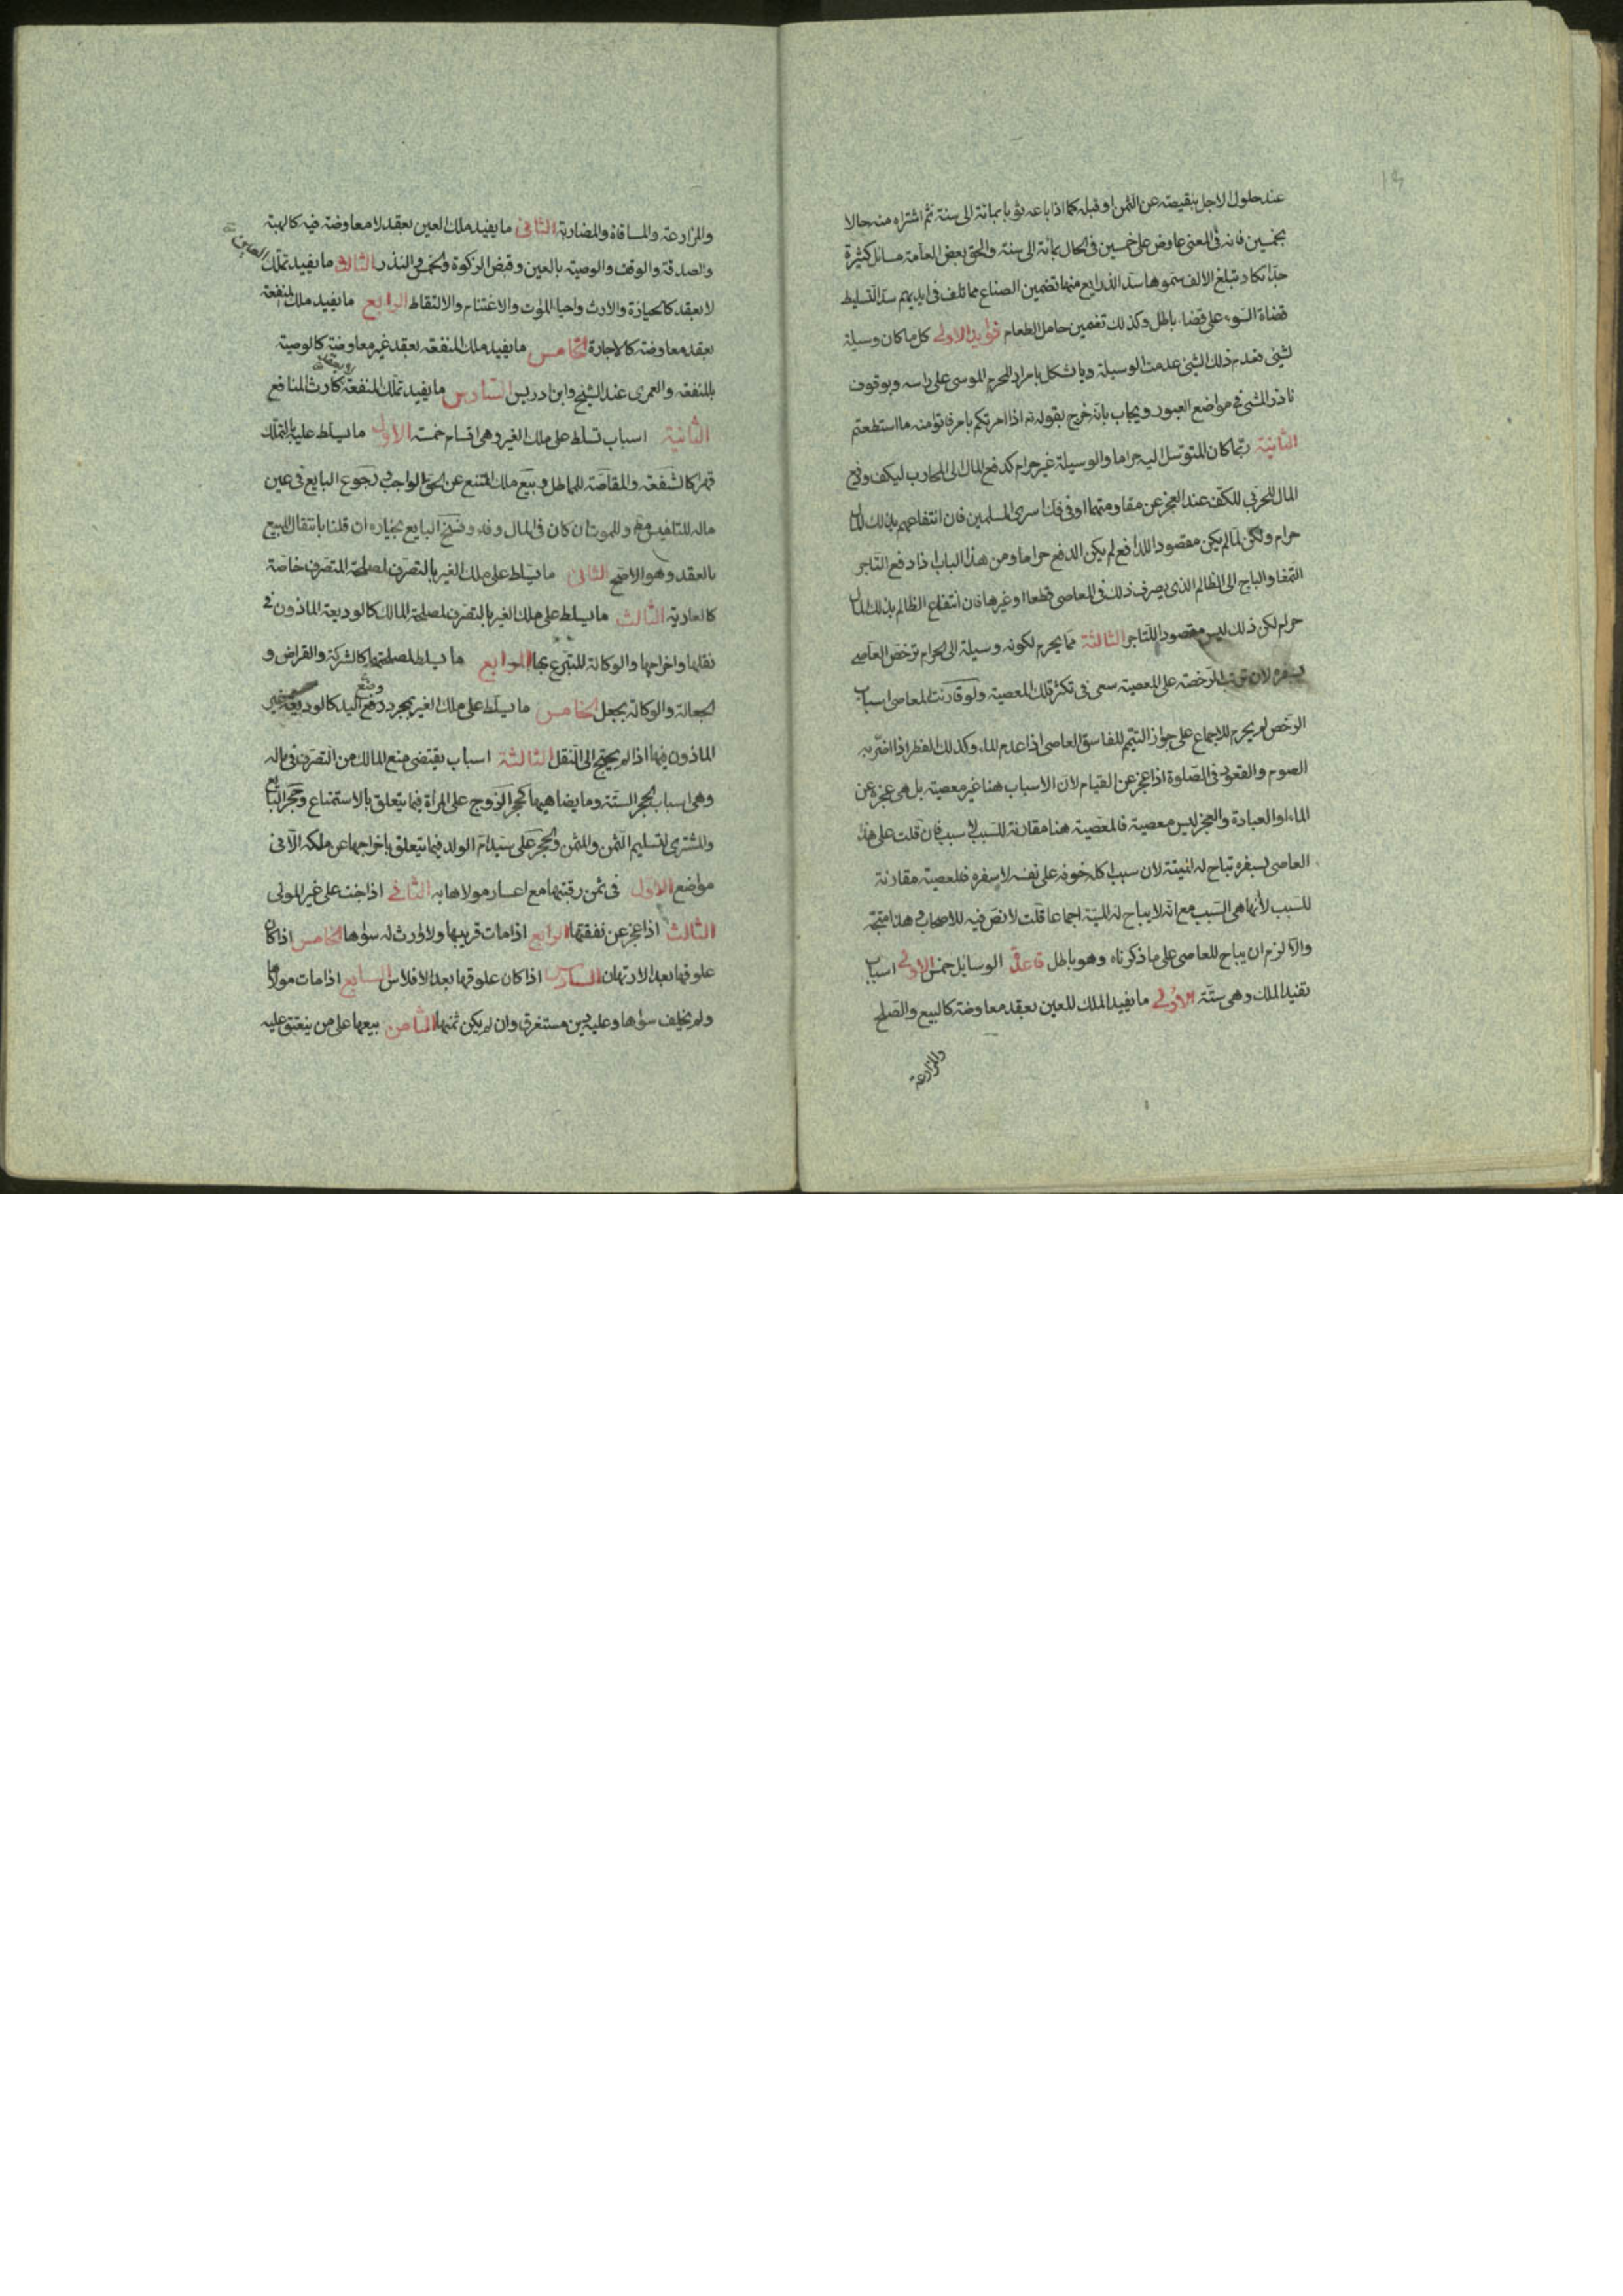 عند حلول الاجل بنقيصته عن الثمن او قبله كما اذا باعه ثوبا بمائة الى سنة ثم اشتراه منه حالا
بخمسين فانه فى المعنى عاوض على خمسين فى الحال بمائة الى سنة والحق بعض العامة مسائل كثيرة
جدا تكاد تبلغ الالف سموها سد الذرايع منها تضمين الصناع مما تلف فى ايديهم سد التسليط
قضاة السوء على قضاء باطل وكذلك تضمين حامل الطعام فوايد الاولى كل ما كان وسيلة
لشئ فعدم ذلك الشئ عدمت الوسيلة ويا شكل بامرار المحرم الموسى على راسه وبوقوف
ناذر المشى فى مواضع العبور ويجاب بانه خرج بقوله اذا امرتكم بامر فاتوا منه ما استطعتم
الثانية ربما كان المتوسل اليه حراما والوسيلة غير حرام كدفع المال الى المحارب ليكف ودفع
المال للحربى للكف عند العجز عن مقاومتهما او فى فك اسرى المسلمين فان انتفاعهم بذلك المال
حرام ولكن لما لم يكن مقصود الدافع لم يكن الدفع حراما ومن هذا الباب اذا دفع التاجر
التمغا والباج الى الظالم الذى يصرف ذلك فى المعاصى قطعا او غيرها فان انتفاع الظالم بذلك المال
حرام لكن ذلك ليس مقصودا للتاجر الثالثة مما يحرم لكونه وسيلة الى الحرام ترخص العاصى
بسفره لان ترتب الرخصة على المعصية سعى فى تكثر تلك المعصية ولو قارنت المعاصى اسباب
الرخص لم يحرم للاجماع على جواز التيمم للفاسق العاصى اذا عدم الماء وكذلك الفطر اذا اضر به
الصوم والقعود فى الصلوة اذا عجز عن القيام لان الاسباب هنا غير معصية بل هى عجزه عن
الماء او العبادة والعجز ليس معصية فالمعصية هنا مقارنة للسبب لا سبب فان قلت على هذا
العاصى بسفره تباح له الميتة لان سبب اكله خوفه على نفسه لا سفره فالمعصية مقارنة
للسبب لا انها هى السبب مع انه لا يباح له الميتة اجماعا قلت لا نص فيه للاصحاب هنا متجه
والا لزم ان يباح للعاصى على ما ذكرناه وهو باطل قاعدة الوسايل خمس الاولى اسباب
تفيد الملك وهى ستة الاولى ما يفيد الملك للعين بعقد معاوضة كالبيع والصلح
والمزارعة
والمزارعة والمساقاة والمضاربة الثانى ما يفيد ملك العين بعقد لا معاوضة فيه كالهبة
والصدقة والوقف والوصية بالعين وقبض الزكوة والخمس والنذر الثالث ما يفيد تملك العين
لا بعقد كالحيازة والارث واحياء الموات والاغتنام والالتقاط الرابع ما يفيد ملك المنفعة
بعقد معاوضة كالاجارة الخامس ما يفيد ملك المنفعة بعقد غير معاوضة كالوصية
بالمنفعة والعمرى عند الشيخ وابن ادريس السادس ما يفيد تملك المنفعة كارث المنافع
الثانية اسباب تسلط على ملك الغير وهى اقسام خمسة الاول ما يسلط عليه بالتملك
قهرا كالشفعة والمقاصة للمماطل وبيع ملك الممتنع عن الحق الواجب ورجوع البايع فى عين
ماله للتفليس وللموت ان كان فى المال وفاء وفسخ البايع بخياره ان قلنا بانتقال المبيع
بالعقد وهو الاصح الثانى ما يسلط على ملك الغير بالتصرف لمصلحة المتصرف خاصة
كالعارية الثالث ما يسلط على ملك الغير بالتصرف لمصلحة المالك كالوديعة الماذون فى
نقلها واخراجها والوكالة للتبرع بها الرابع ما يسلط لمصلحتهما كالشركة والقراض و
الجعالة والوكالة بجعل الخامس ما يسلط على ملك الغير بمجرد وضع اليد كالوديعة غير
الماذون فيها اذا لم يحتج الى النقل الثالثة اسباب يقتضى منع المالك من التصرف فى ماله
وهى اسباب الحجر الستة وما يضاهيها كحجر الزوج على المراة فيما يتعلق بالاستمتاع وحجر البايع
والمشترى لتسليم الثمن والمثمن والحجر على سيد ام الولد فيما يتعلق باخراجها عن ملكه الا فى
مواضع الاول فى ثمن رقبتها مع اعسار مولاها به الثانى اذا جنت على غير المولى
الثالث اذا عجز عن نفقتها الرابع اذا مات قريبها ولا وارث له سواها الخامس اذا كان
علوقها بعد الارتهان السادس اذا كان علوقها بعد الافلاس السابع اذا مات مولاها
ولم يخلف سواها وعليه دين مستغرق وان لم يكن ثمنها الثامن بيعها على من ينعتق عليه